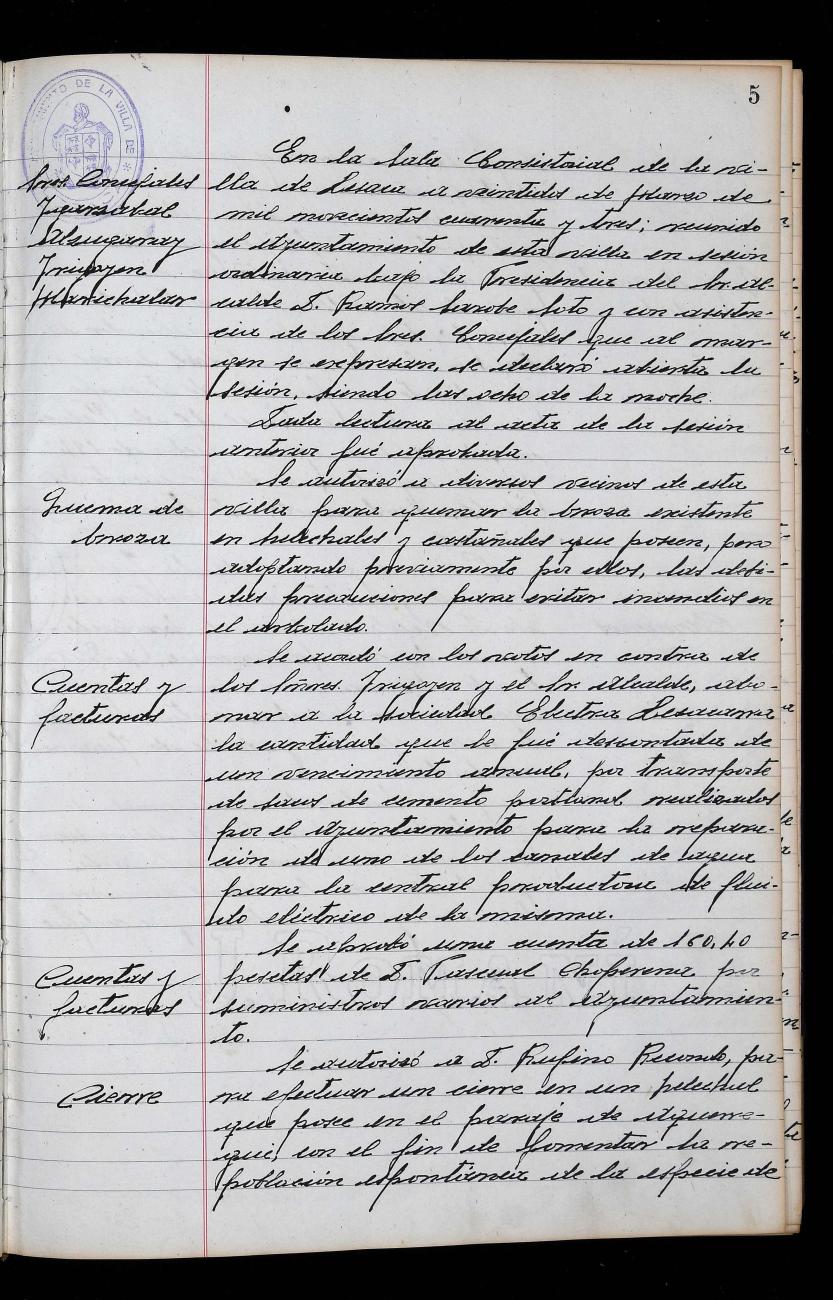 5
AYUNTAMIENTO DE LA VILLA DE
En la Sala Consistorial de la vi-
Sres. Concejales
lla de Lesaca a veintidos de Marzo de
Igarzabal
mil novecientos cuarenta y tres; reunido
Alzugaray
el Ayuntamiento de esta villa en sesión
Irigoyen
ordinaria bajo la Presidencia del Sr. Al-
Marichalar
calde D. Ramos Sarobe Soto y con asisten-
cia de los Sres. Concejales que al mar-
gen se expresan, se declaró abierta la
sesión, siendo las ocho de la noche.
Dada lectura al acta de la sesión
anterior fué aprobada.
Se autorizó a diversos vecinos de esta
Quema de
villa para quemar la broza existente
broza
en helechales y castañales que poseen, pero
adoptando previamente por ellos, las debi-
das precauciones para evitar incendios en
el arbolado.
Se acordó con los votos en contra de
Cuentas y
los Sñres. Irigoyen y el Sr. Alcalde, abo-
facturas
nar a la sociedad Electra Lesacarra
la cantidad que le fué descontada de
un vencimiento anual, por transporte
de sacos de cemento portland realizados
por el Ayuntamiento para la repara-
ción de uno de los canales de agua
para la central productora de flui-
do eléctrico de la misma.
Se aprobó una cuenta de 160,40
Cuentas y
pesetas de D. Pascual Choperena por
facturas
suministros varios al Ayuntamien-
to.
Se autorizó a D. Rufino Recondo, pa-
Cierre
ra efectuar un cierre en un helechal
que posee en el paraje de Aguerre-
gui, con el fin de fomentar la re-
población espontánea de la especie de